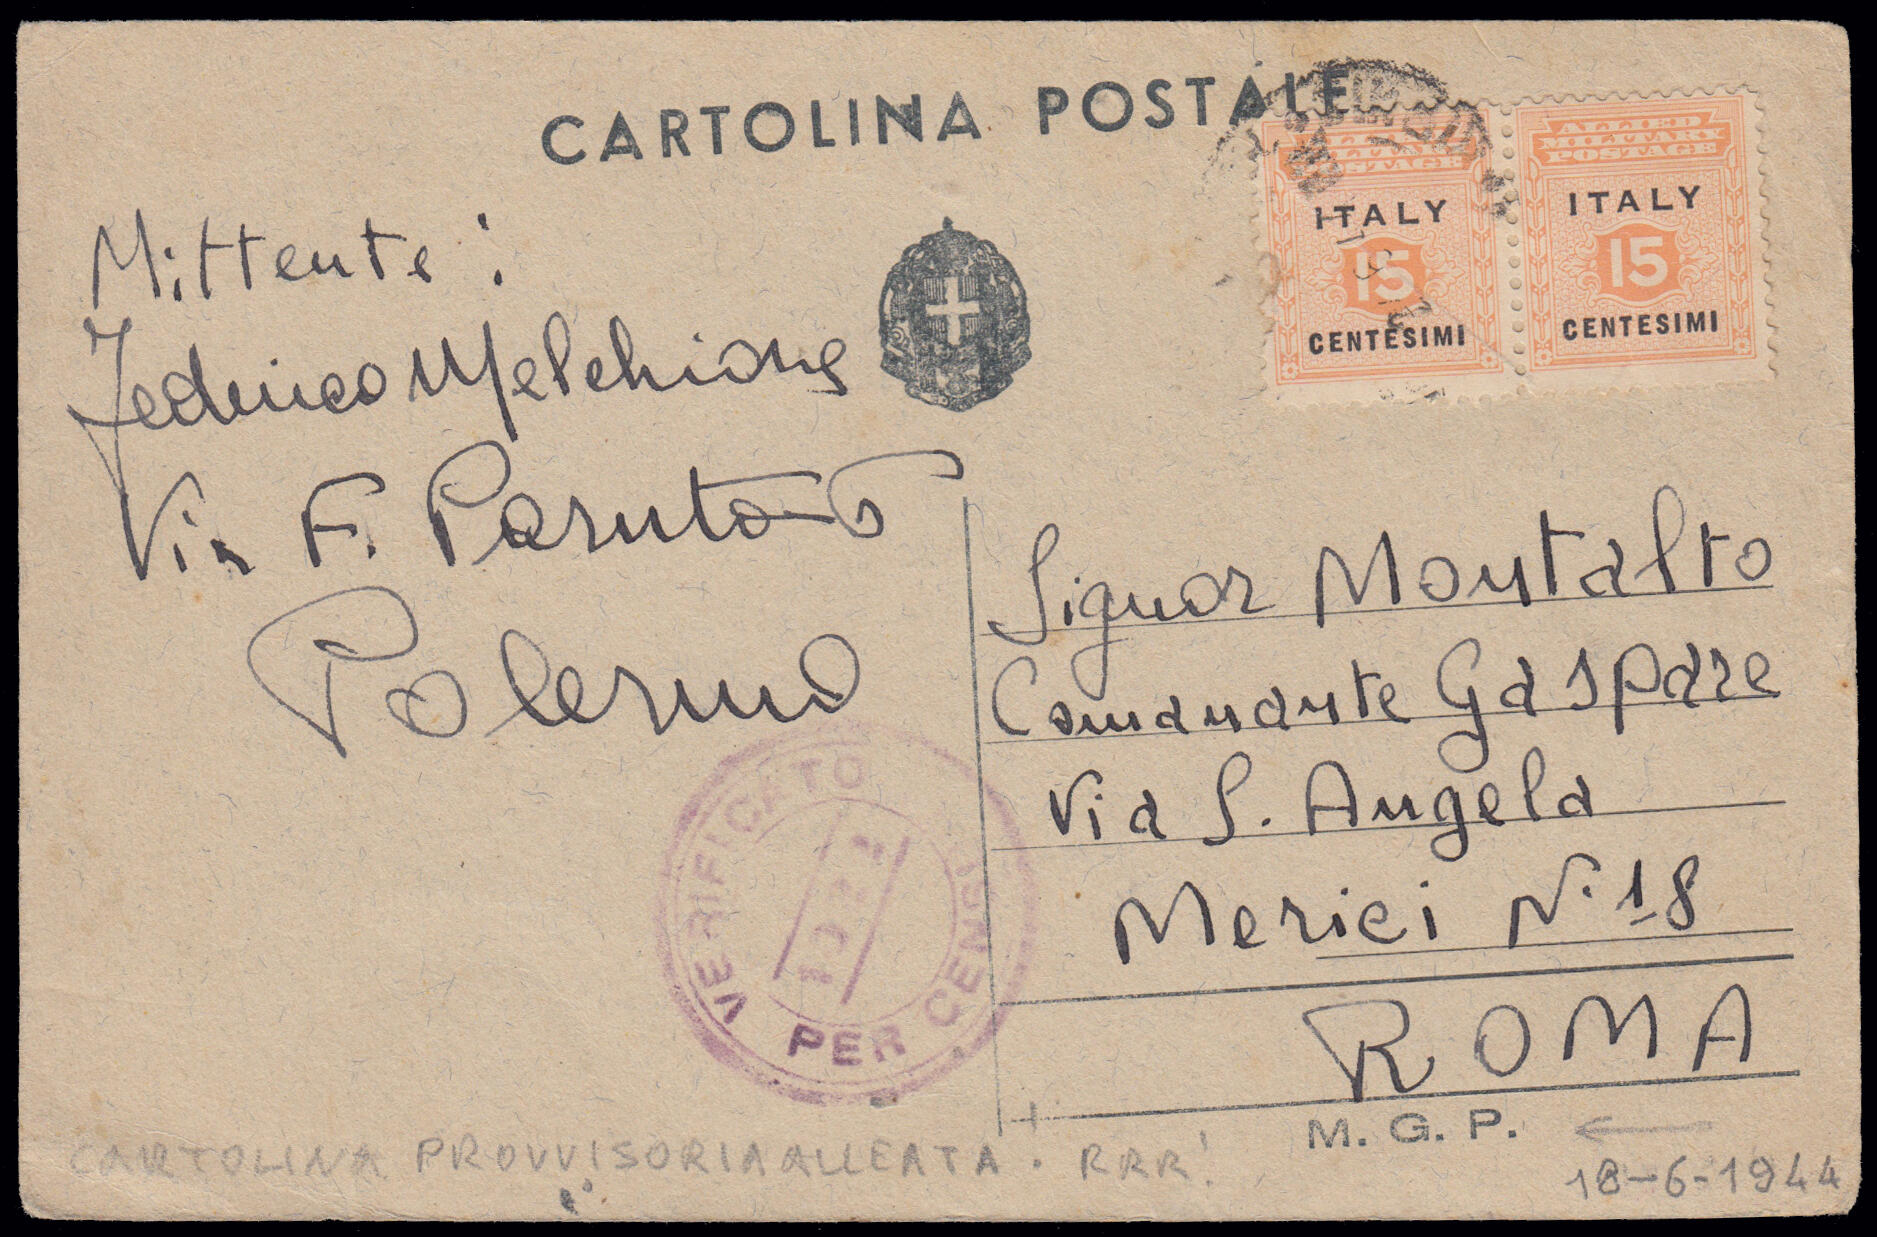 CARTOLINA POSTALE
ALLIED
MILITARY
POSTAGE
ITALY
15
CENTESIMI
ALLIED
MILITARY
POSTAGE
ITALY
15
CENTESIMI
Mittente:
Federico Melchiorre
Via F. Paruta 6
Palermo
Signor Montalto
Comandante Gaspare
Via S. Angela
Merici N. 18
ROMA
VERIFICATO PER CENSURA
M. G. P.
CARTOLINA PROVVISORIA ALLEATA. RRR!
18-6-1944